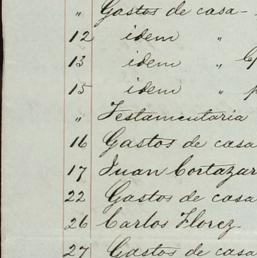 " Gastos de casa-
12 idem "
13 idem "
15 idem "
" Testamentaria
16 Gastos de casa
17 Juan Cortazar
22 Gastos de casa
26 Carlos Florez
27 Gastos de casa